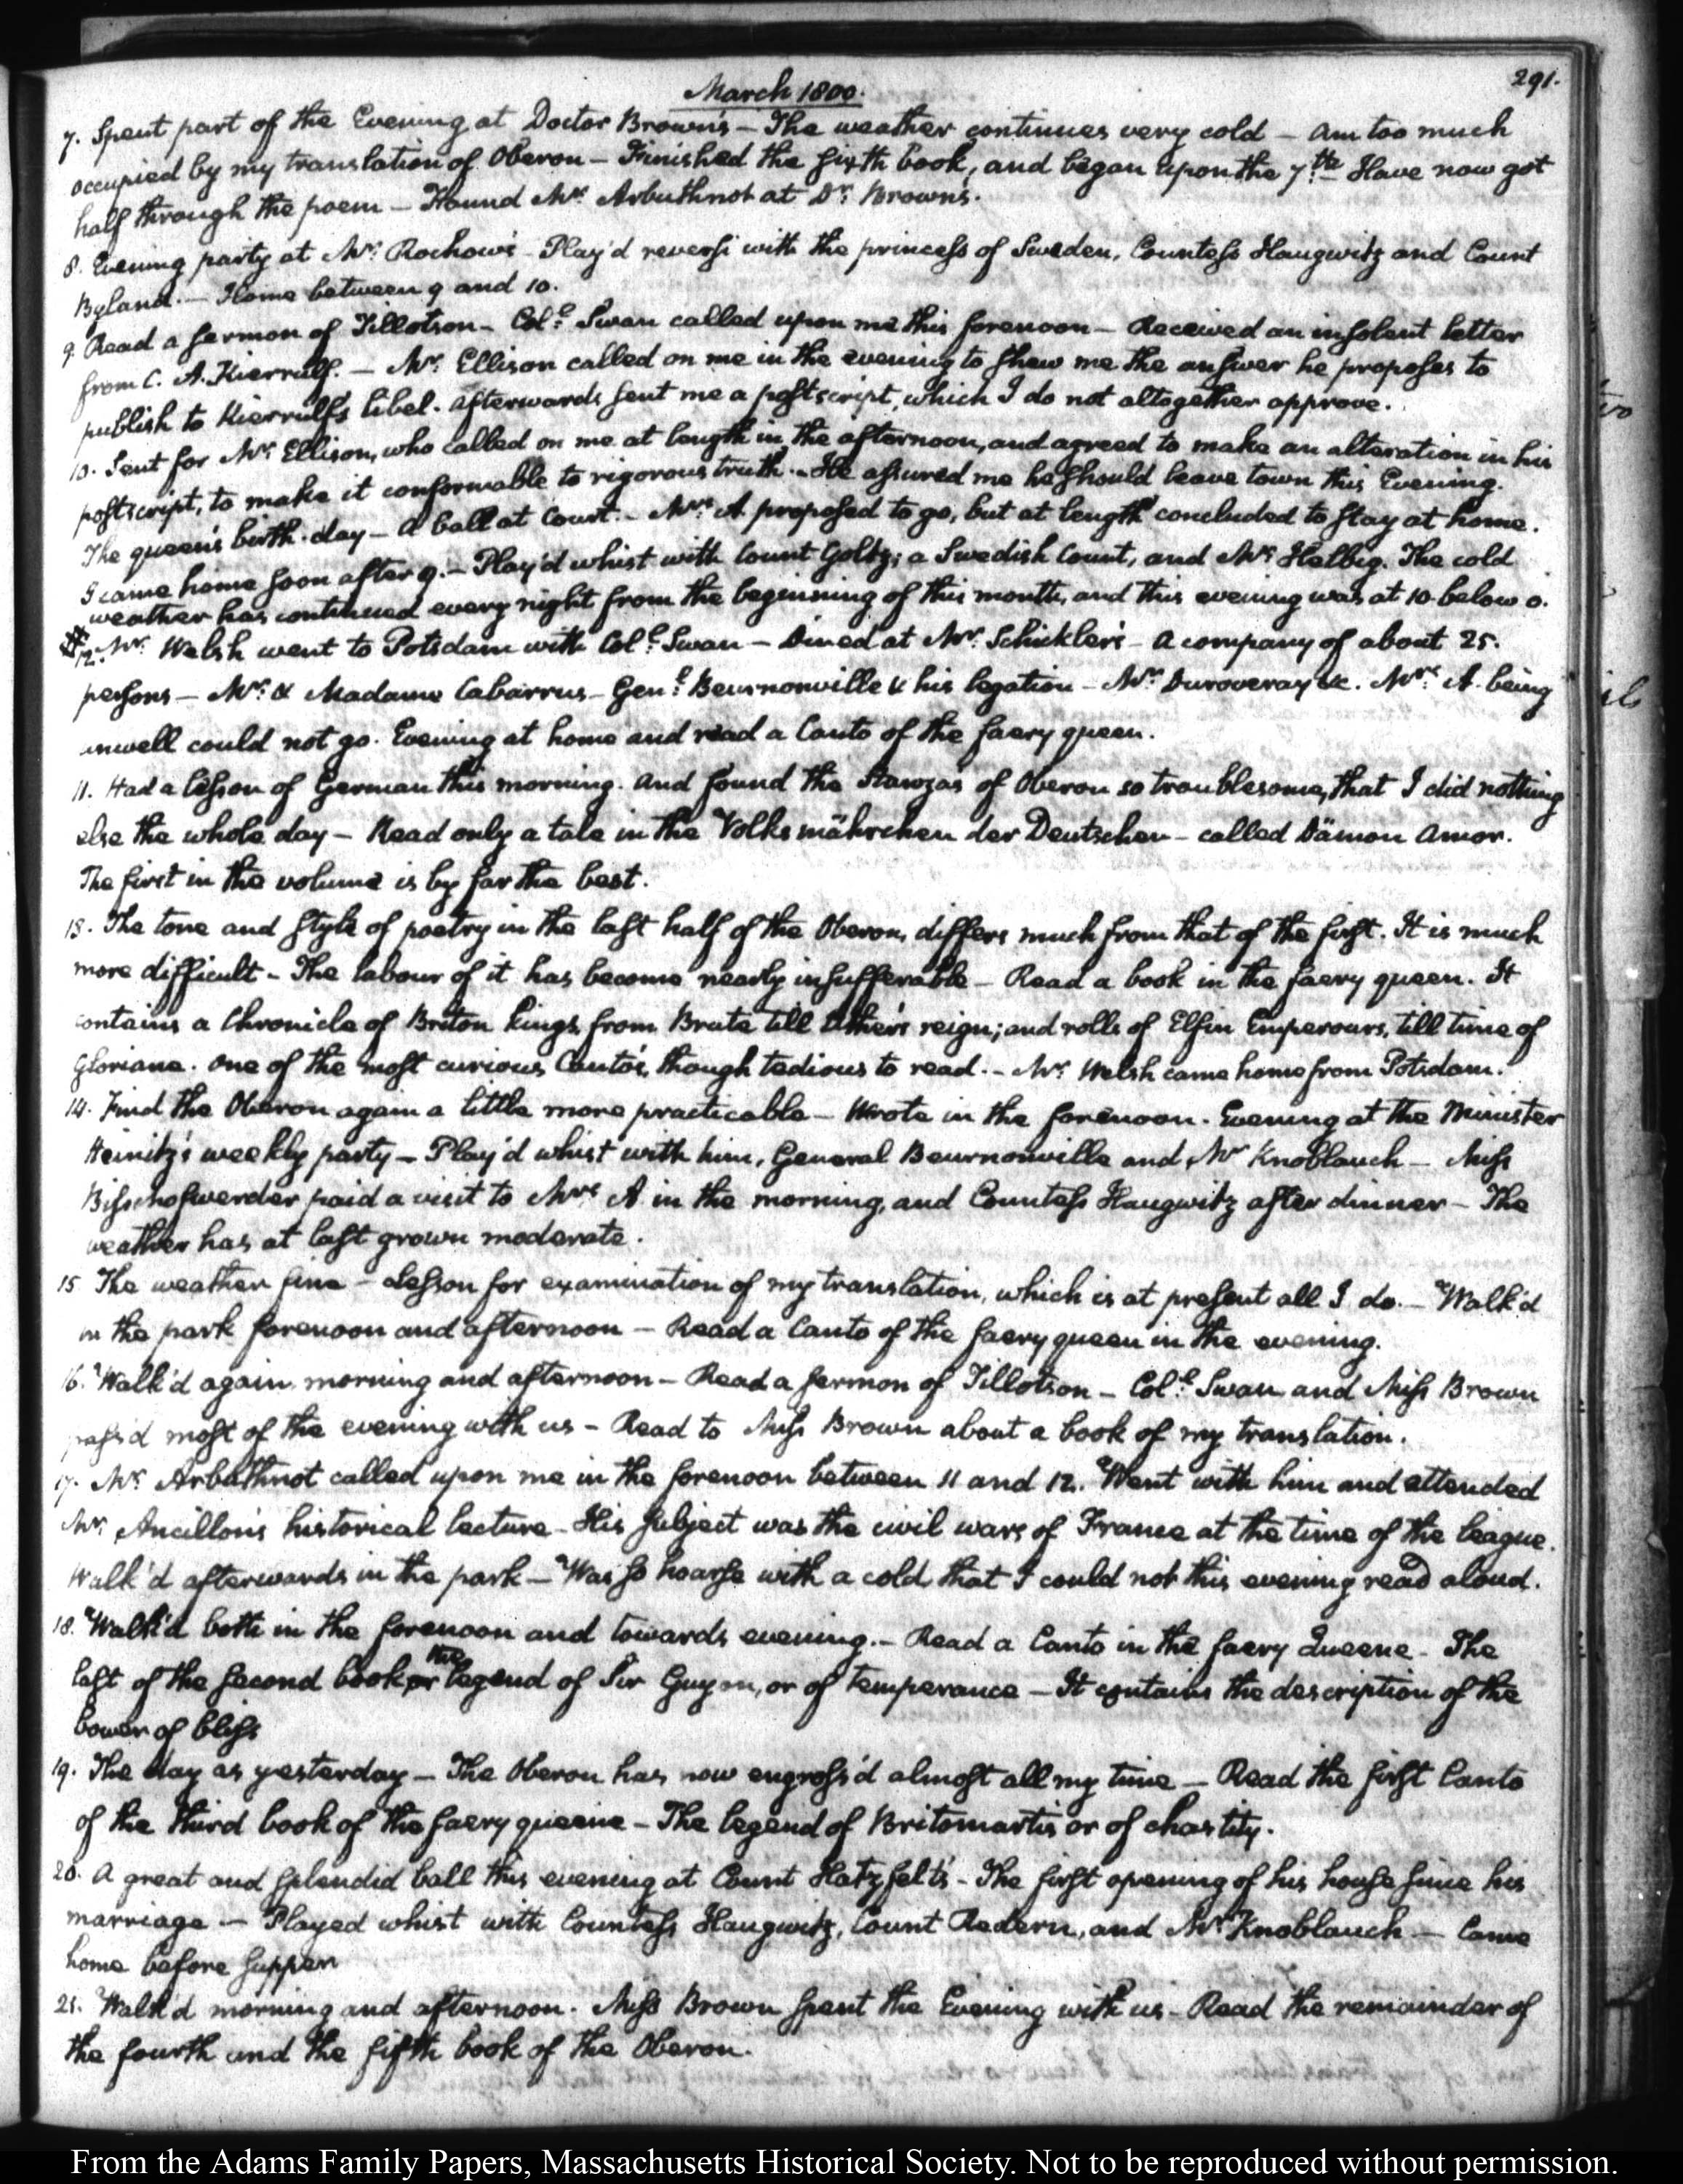 291.
March 1800.
7. Spent part of the Evening at Doctor Brown's — The weather continues very cold — Am too much
occupied by my translation of Oberon — Finished the sixth book, and began upon the 7th. Have now got
half through the poem — Found Mr. Arbuthnot at Dr. Brown's.
8. Evening party at Mr. Rochow's — Play'd reversi with the princess of Sweden, Countess Haugwitz and Count
Byland. — Home between 9 and 10.
9. Read a sermon of Tillotson — Coll. Swan called upon me this forenoon — Received an insolent letter
from C. A. Kierrulf. — Mr. Ellison called on me in the evening to shew me the answer he proposes to
publish to Kierrulf's libel. Afterwards sent me a postscript, which I do not altogether approve.
10. Sent for Mr. Ellison, who called on me at length in the afternoon, and agreed to make an alteration in his
postscript, to make it conformable to rigorous truth. — He assured me he should leave town this Evening.
The queen's birth-day — A ball at Court. — Mrs. A. proposed to go, but at length concluded to stay at home.
I came home soon after 9. — Play'd whist with Count Goltz; a Swedish Count, and Mr. Helbig. The cold
weather has continued every night from the beginning of this month, and this evening was at 10. below 0.
# 12. Mr. Welsh went to Potsdam with Coll. Swan — Dined at Mr. Schickler's — A company of about 25.
persons — Mr. & Madame Cabarrus — Genl. Beurnonville & his legation — Mr. Duroveray &c. Mrs. A. being
unwell could not go. Evening at home and read a Canto of the faery queen.
11. Had a lesson of German this morning. And found the Stanzas of Oberon so troublesome, that I did nothing
else the whole day — Read only a tale in the Volksmährchen der Deutschen — called Dämon Amor.
The first in the volume is by far the best.
13. The tone and style of poetry in the last half of the Oberon, differs much from that of the first. It is much
more difficult — The labour of it has become nearly insufferable — Read a book in the faery queen. It
contains a Chronicle of Briton kings, from Brute till Uther's reign; and rolls of Elfin Emperours, till time of
Gloriane. One of the most curious Canto's, though tedious to read. — Mr. Welsh came home from Potsdam.
14. Find the Oberon again a little more practicable — Wrote in the forenoon. Evening at the Minister
Heinitz's weekly party — Play'd whist with him, General Beurnonville and Mr. Knoblauch — Miss
Bisschofswerder paid a visit to Mrs. A. in the morning, and Countess Haugwitz after dinner — The
weather has at last grown moderate.
15 The weather fine — Lesson for examination of my translation, which is at present all I do. — Walk'd
in the park forenoon and afternoon — Read a Canto of the faery queen in the evening.
16. Walk'd again, morning and afternoon — Read a sermon of Tillotson — Coll. Swan and Miss Brown
pass'd most of the evening with us — Read to Miss Brown about a book of my translation.
17. Mr. Arbuthnot called upon me in the forenoon between 11 and 12. Went with him and attended
Mr. Ancillon's historical lecture — His subject was the civil wars of France at the time of the league.
Walk'd afterwards in the park — Was so hoarse with a cold that I could not this evening read aloud.
18. Walk'd both in the forenoon and towards evening. — Read a Canto in the faery Queene — The
last of the second book, or the legend of Sir Guyon, or of temperance — It contains the description of the
bower of bliss
19. The day as yesterday — The Oberon has now engross'd almost all my time — Read the first Canto
of the third book of the faery queene — The legend of Britomartis or of chastity.
20. A great and splendid ball this evening at Count Hatzfelt's — The first opening of his house since his
marriage — Played whist with Countess Haugwitz, Count Redern, and Mr. Knoblauch — Came
home before supper
21. Walk'd morning and afternoon. Miss Brown spent the Evening with us — Read the remainder of
the fourth and the fifth book of the Oberon.
From the Adams Family Papers, Massachusetts Historical Society. Not to be reproduced without permission.